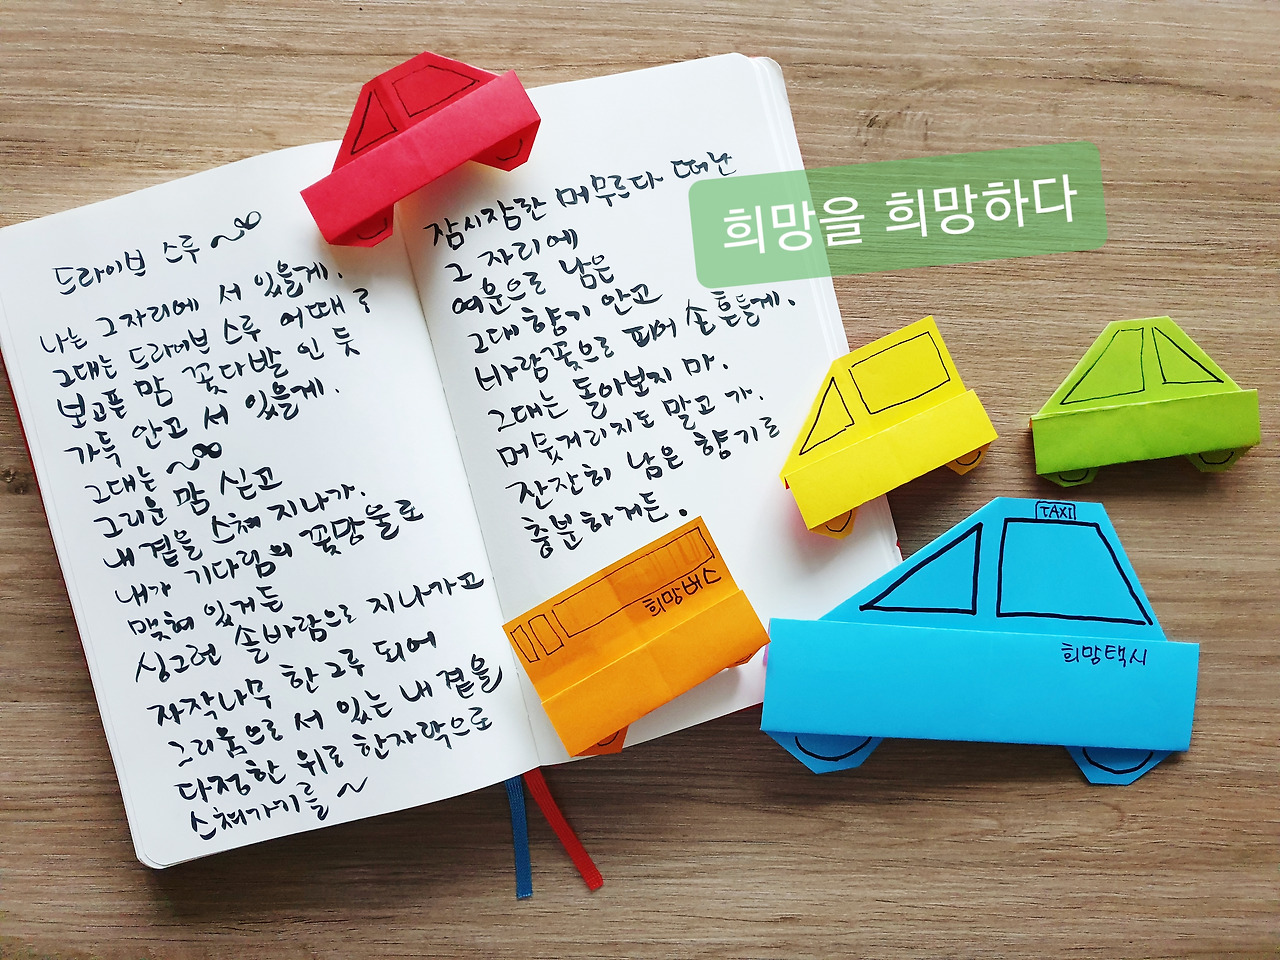 드라이브 스루 ~
나는 그 자리에 서 있을게.
그대는 드라이브 스루 어때?
보고픈 맘 꽃다발 인 듯
가득 안고 서 있을게.
그대는 ~
그리운 맘 싣고
내 곁을 스쳐 지나가.
내가 기다림의 꽃망울로
맺혀 있거든
싱그런 솔바람으로 지나가고
자작나무 한 그루 되어
그리움으로 서 있는 내 곁을
다정한 위로 한자락으로
스쳐가기를 ~
잠시잠깐 머무르다 떠난
그 자리에
여운으로 남은
그대 향기 안고
바람꽃으로 피어 손 흔들게.
그대는 돌아보지 마.
머뭇거리지도 말고 가.
잔잔히 남은 향기로
충분하거든.
희망을 희망하다
희망버스
TAXI
희망택시